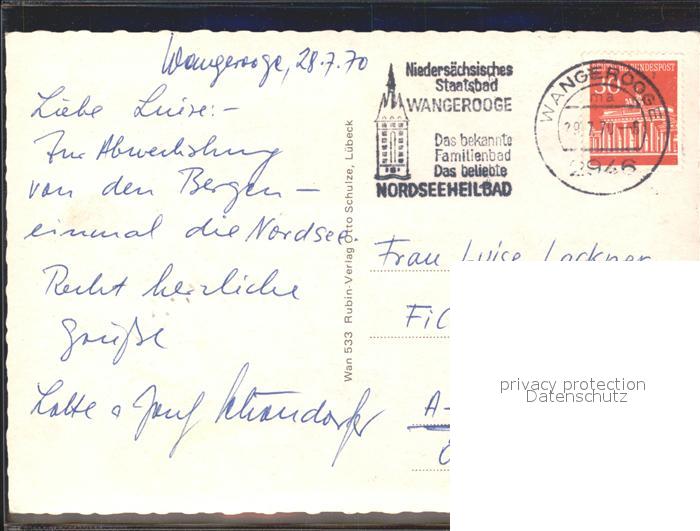 Wangerooge, 28.7.70
Liebe Luise:-
Zur Abwechslung
von den Bergen –
einmal die Nordsee.
Recht herzliche
Grüße
Lotte
Niedersächsisches
Staatsbad
WANGEROOGE
Das bekannte
Familienbad
Das beliebte
NORDSEEHEILBAD
WANGEROOGE
ma
2946
DEUTSCHE BUNDESPOST
30
Wan 533 Rubin-Verlag Otto Schulze, Lübeck
Frau Luise Lackner
A-
privacy protection
Datenschutz